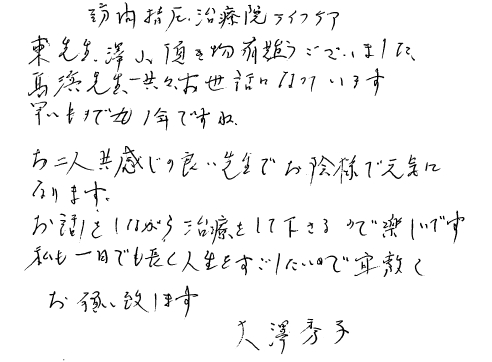 訪問指圧.治療院ライフケア
東先生、澤山頂き物有難うございました、
高浜先生、共々お世話になっています
早いもので丸1年ですね、
お二人共感じの良い先生でお陰様で元気に
なります。
お話しをしながら治療をして下さるので楽しいです
私も一日でも長く人生をすごしたいので宜敷く
お願い致します
大澤秀子